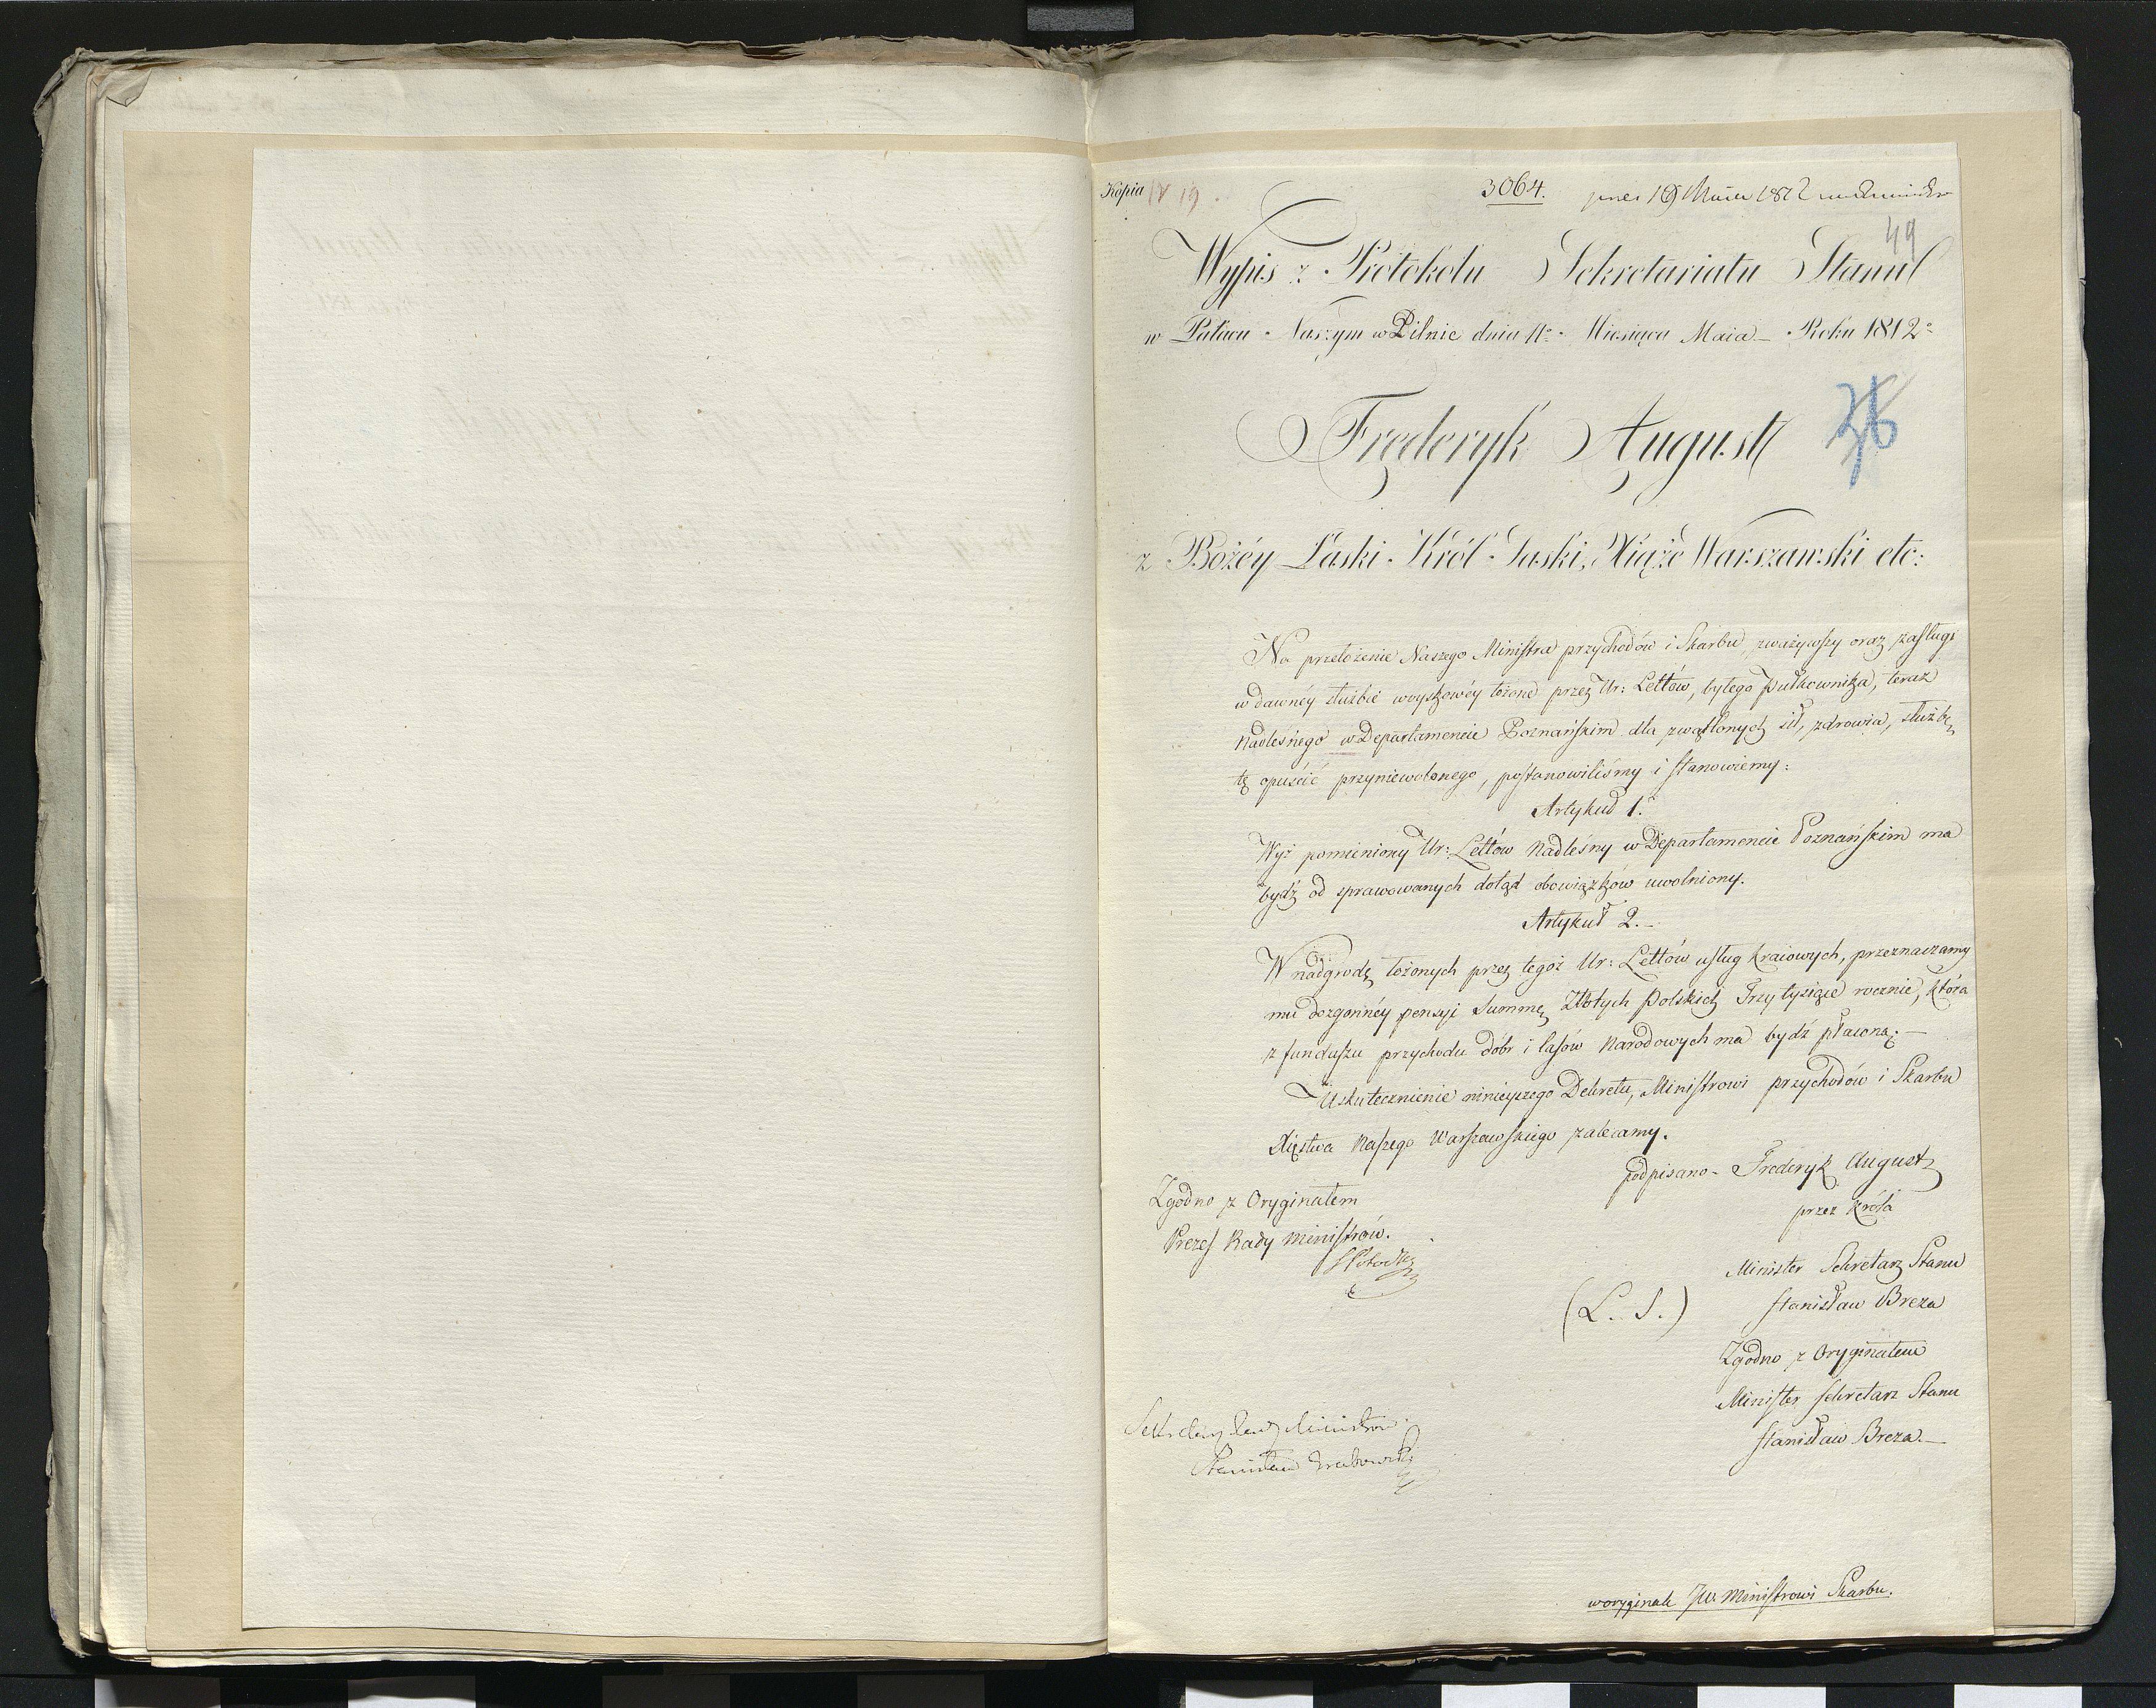 Kopia IV 19
3064.
49
Wypis z Protokołu Sekretariatu Stanu
w Pałacu Naszym w Pilnic dnia 11º Miesiąca Maia – Roku 1812º
Fryderyk August
z Bożéy Łaski Król Saski, Xiążę Warszawski etc:
Na przełożenie Naszego Ministra przychodów i Skarbu, zważywszy oraz zasługi
w dawnéy służbie woyskowéy łożone przez Ur: Lettów, byłego Pułkownika, teraz
Nadleśnego w Departamencie Poznańskim dla zwątlonych sił, zdrowia, służbę
tę opuścić przyniewolonego, postanowiliśmy i stanowiemy:
Artykuł 1.º
Wyż pomieniony Ur: Lettów Nadleśny w Departamencie Poznańskim ma
bydź od sprawowanych dotąd obowiązków uwolniony.
Artykuł 2. –
W nadgrodę łożonych przez tegoż Ur: Lettów usług kraiowych, przeznaczamy
mu dozgonnéy pensyi Summę Złotych Polskich Trzy tysiące rocznie, która
z funduszu przychodu dóbr i lasów Narodowych ma bydź płaconą. –
Uskutecznienie ninieyszego Dekretu, Ministrowi przychodów i Skarbu
Xięstwa Naszego Warszawskiego zalecamy.
podpisano – Frederyk August
przez Króla
Minister Sekretarz Stanu
(L. S.) Stanisław Breza
Zgodno z Oryginałem
Minister Sekretarz Stanu
Stanisław Breza. –
Zgodno z Oryginałem
Prezes Rady Ministrów.
SPotocki
Sekretarz Rady Ministrów
Stanisław Grabowski
w oryginale JW Ministrowi Skarbu.